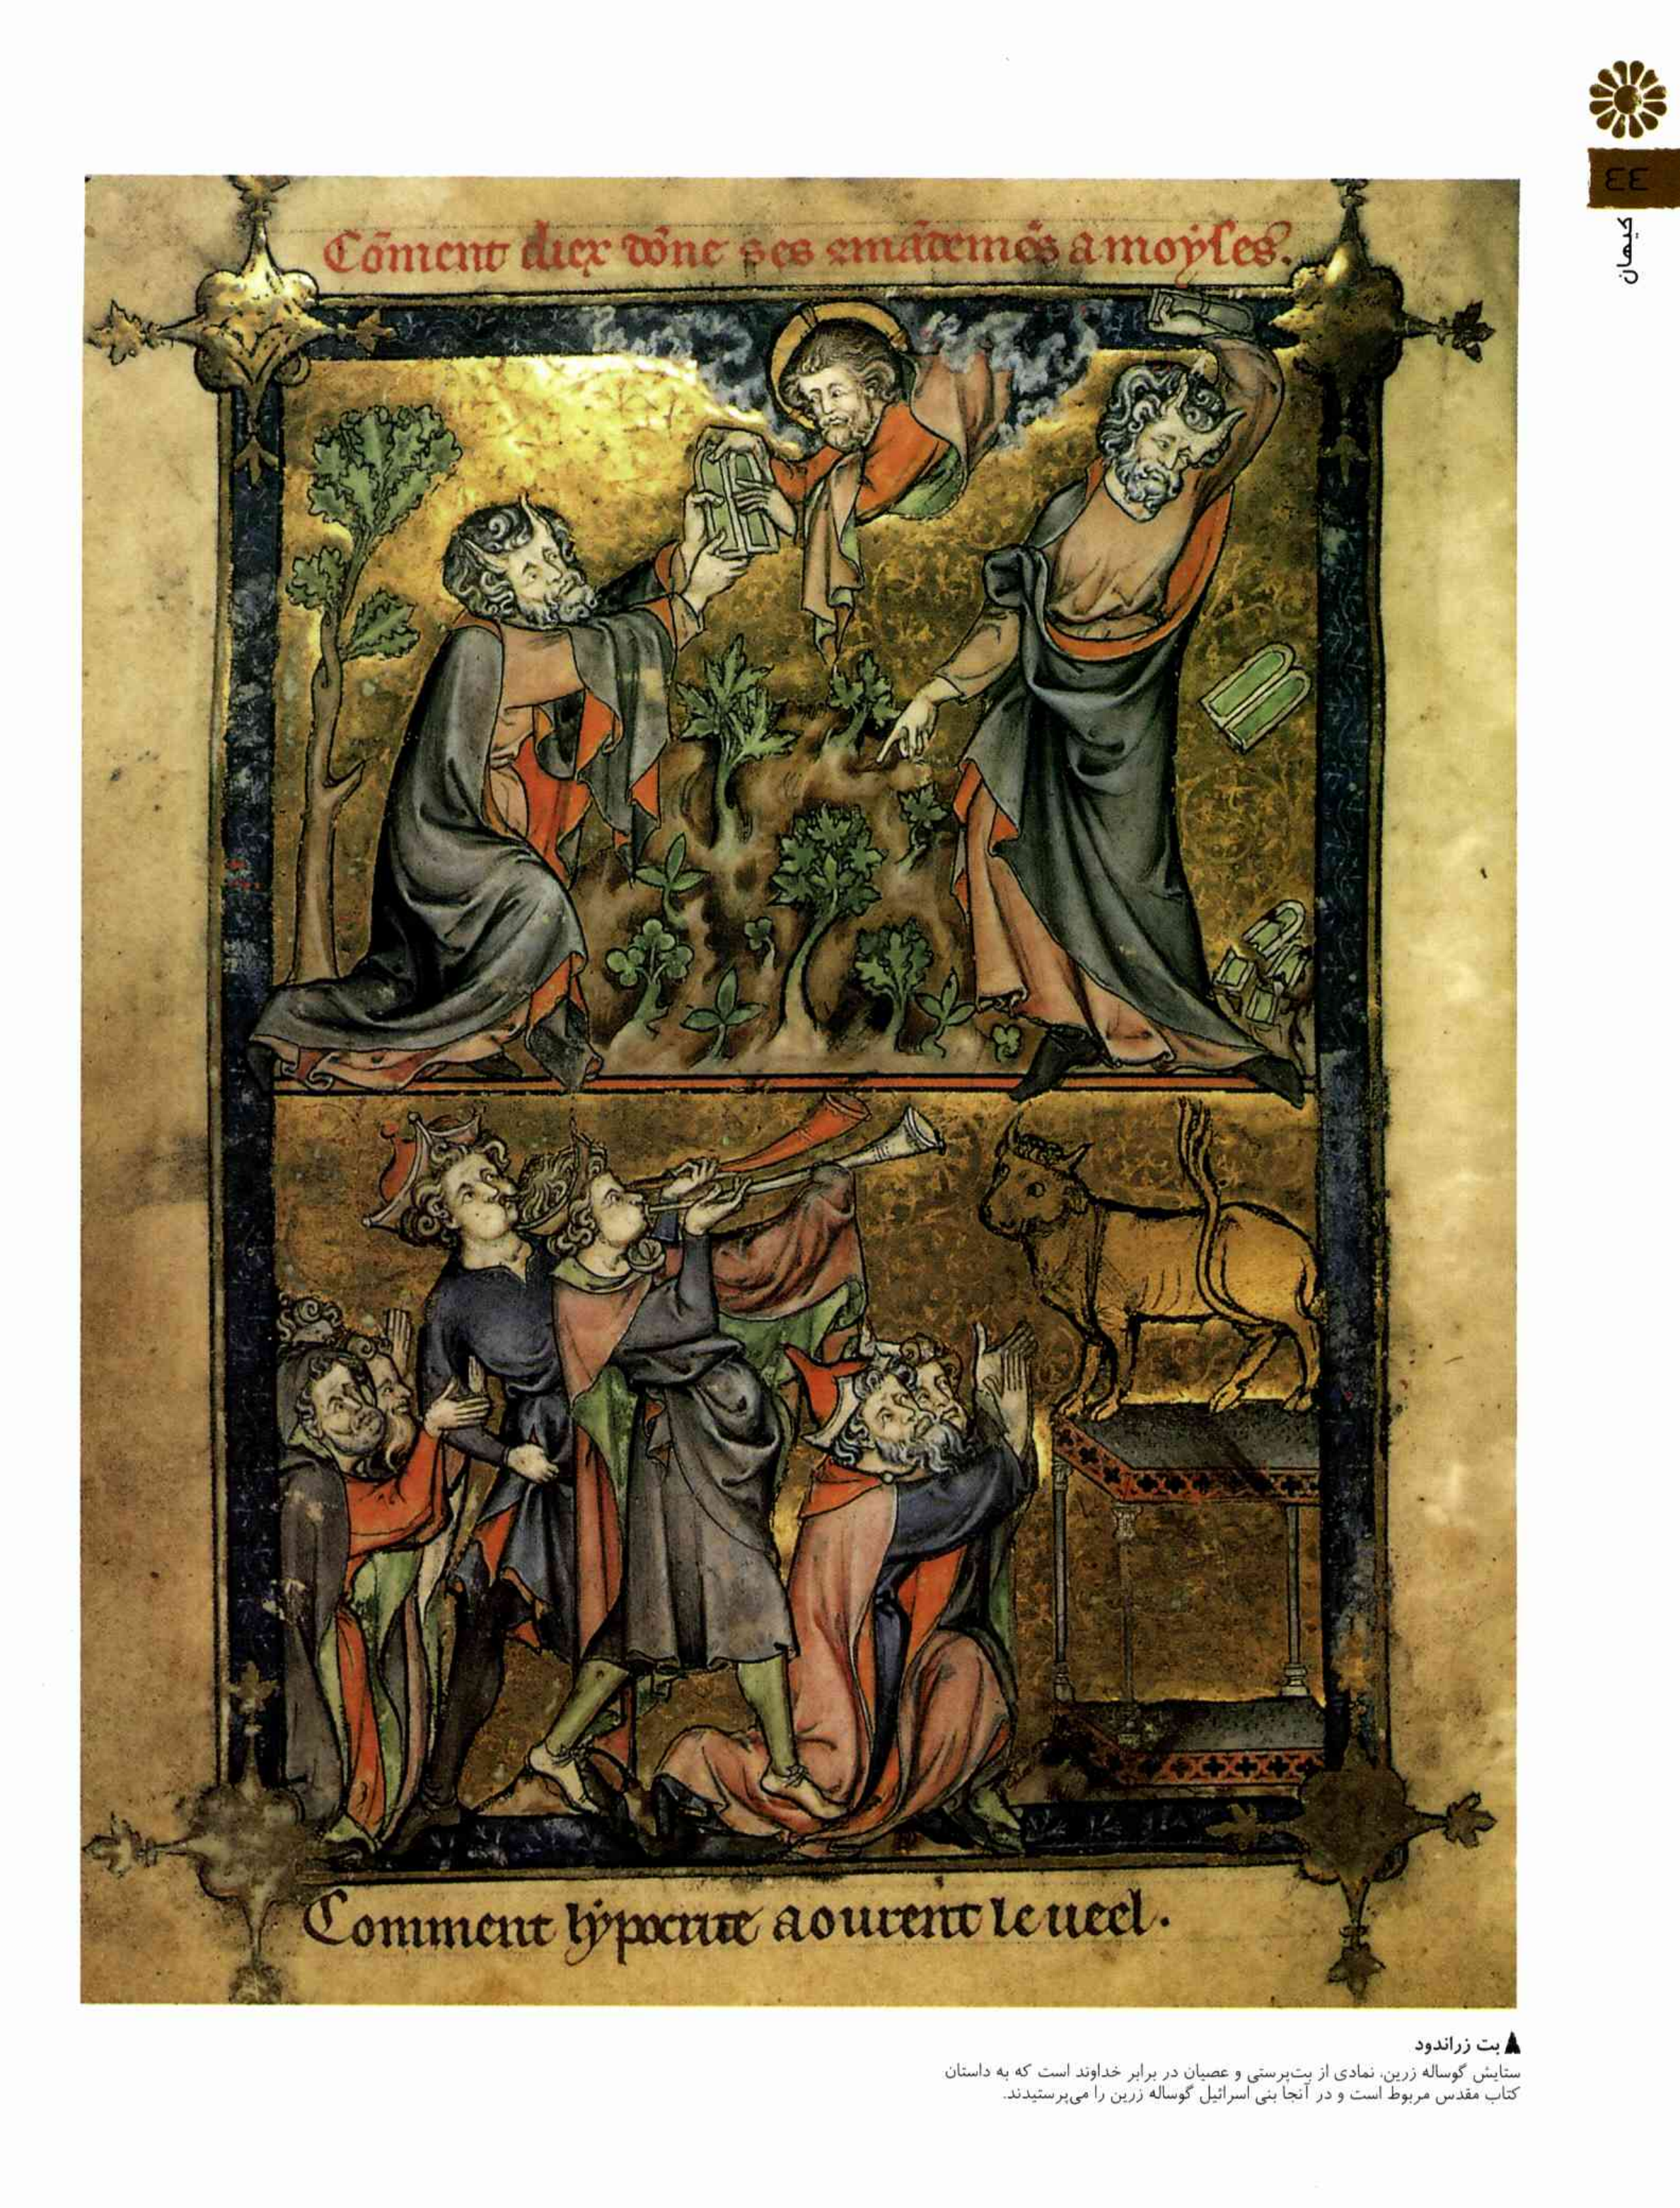 ٤٤
کیهان
Cõment diex dõne ses ꝯmãdemẽs a moyses.
Comment hypocrite aourent le ueel.
بت زراندود
ستایش گوساله زرین، نمادی از بت‌پرستی و عصیان در برابر خداوند است که به داستان
کتاب مقدس مربوط است و در آنجا بنی اسرائیل گوساله زرین را می‌پرستیدند.